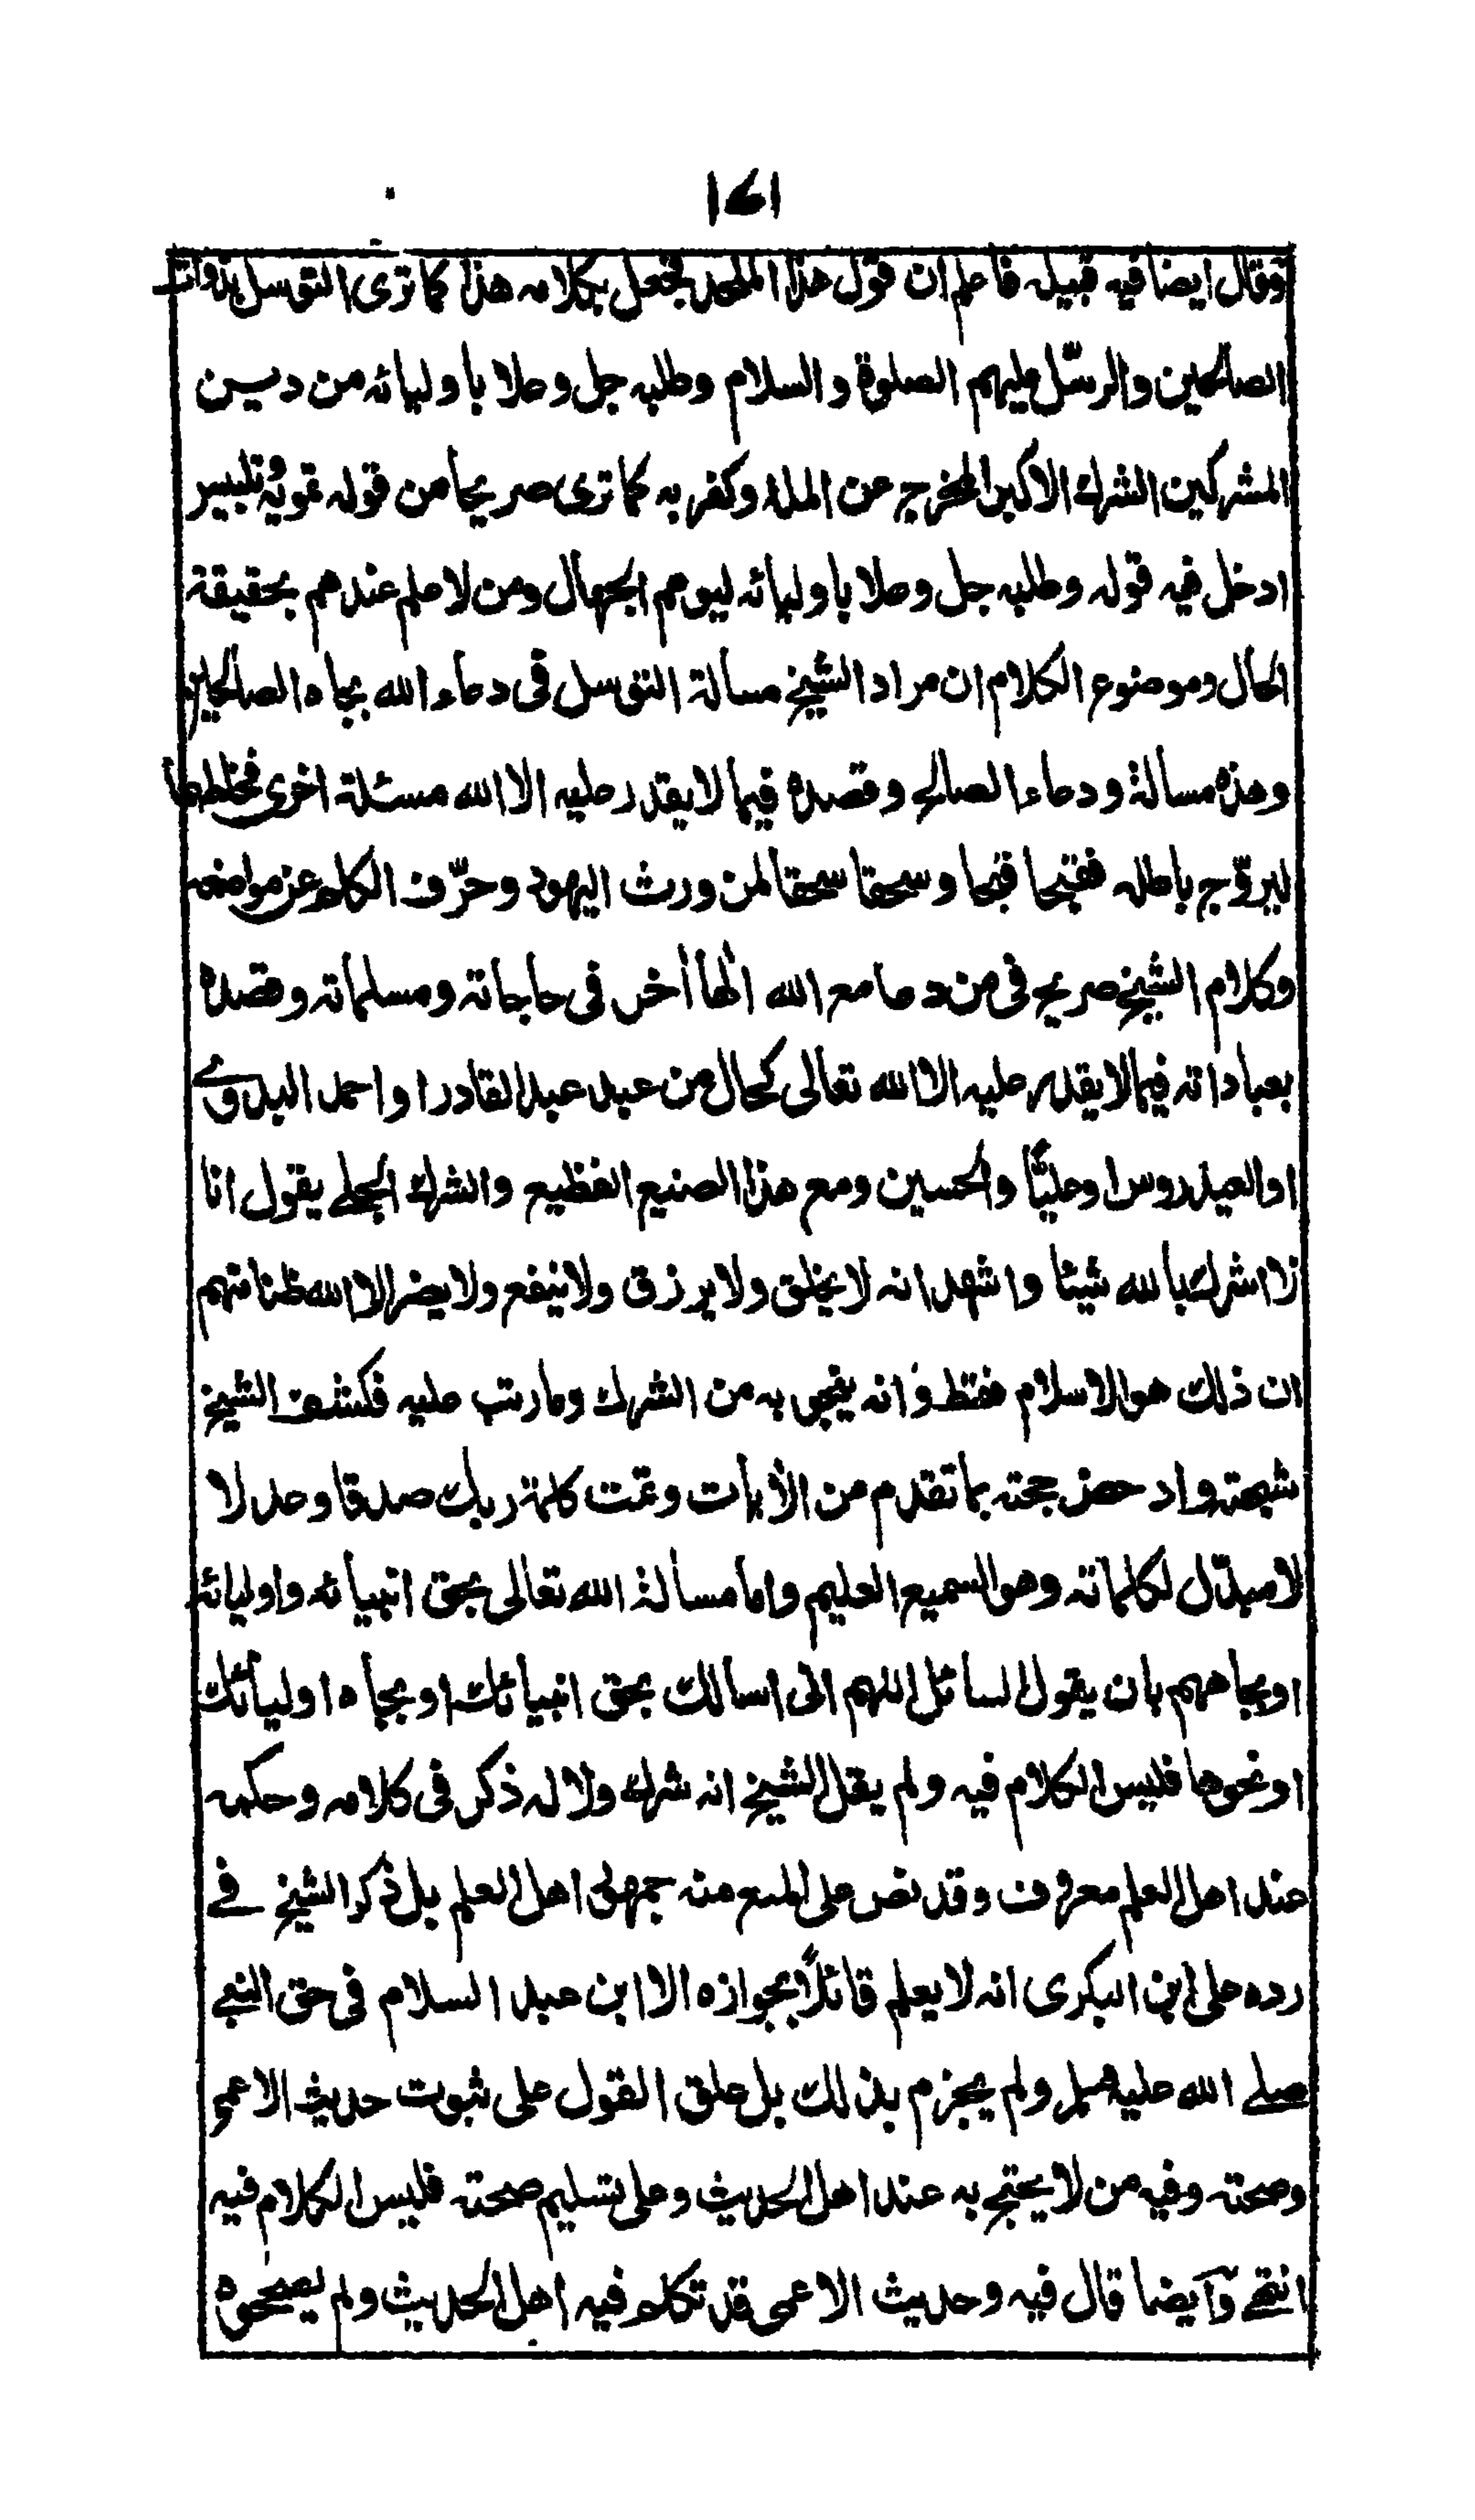 ١٤١
وقال ايضا فيه قبيله فاعلم ان قول هذا الملحد فجعل بكلامه هذا كما ترى التوسل بذوات
الصالحين والرسل عليهم الصلوة والسلام وطلبه جل وعلا باوليائه من دين
المشركين الشرك الاكبر المخرج عن الملة وكفر به كما ترى صريحا من قوله تمويه وتلبيس
ادخل فيه قوله وطلبه جل وعلا باوليائه ليوهم الجهال ومن لا علم عندهم بحقيقة
الحال وموضوع الكلام ان مراد الشيخ مسألة التوسل في دعاء الله بجاه الصالحين
وهذه مسألة ودعاء الصالح وقصده فيما لا يقدر عليه الا الله مسئلة اخرى فخلطها
ليروّج باطله فقبحا قبحا وسحقا سحقا لمن ورث اليهود وحرّف الكلم عن مواضعه
وكلام الشيخ صريح في من دعا مع الله الها آخر في حاجاته ومسلماته وقصده
بعباداته فيما لا يقدر عليه الا الله تعالى كحال من عبد عبد القادر او احمد البدوي
او العيدروس او عليّا والحسين ومع هذا الصنيع الفظيع والشرك الجلي يقول انا
لا اشرك بالله شيئا واشهد انه لا يخلق ولا يرزق ولا ينفع ولا يضر الا الله ظنا منهم
ان ذلك هو الاسلام فقط وانه ينجي به من الشرك وما رتب عليه فكشف الشيخ
شبهته وادحض حجته بما تقدم من الآيات وتمت كلمة ربك صدقا وعدلا
لا مبدّل لكلماته وهو السميع العليم واما مسألة الله تعالى بحق انبيائه واوليائه
او بجاههم بان يقول السائل اللهم اني اسالك بحق انبيائك او بجاه اوليائك
او نحوها فليس الكلام فيه ولم يقل الشيخ انه شرك ولا له ذكر في كلامه وحكمه
عند اهل العلم معروف وقد نص على المنع منه جمهور اهل العلم بل ذكر الشيخ في
رده على ابن البكري انه لا يعلم قائلاً بجوازه الا ابن عبد السلام في حق النبي
صلى الله عليه وسلم ولم يجزم بذلك بل علق القول على ثبوت حديث الاعمى
وصحته وفيه من لا يحتج به عند اهل الحديث وعلى تسليم صحته فليس الكلام فيه
انتهى وايضا قال فيه وحديث الاعمى قد تكلم فيه اهل الحديث ولم يصححوه